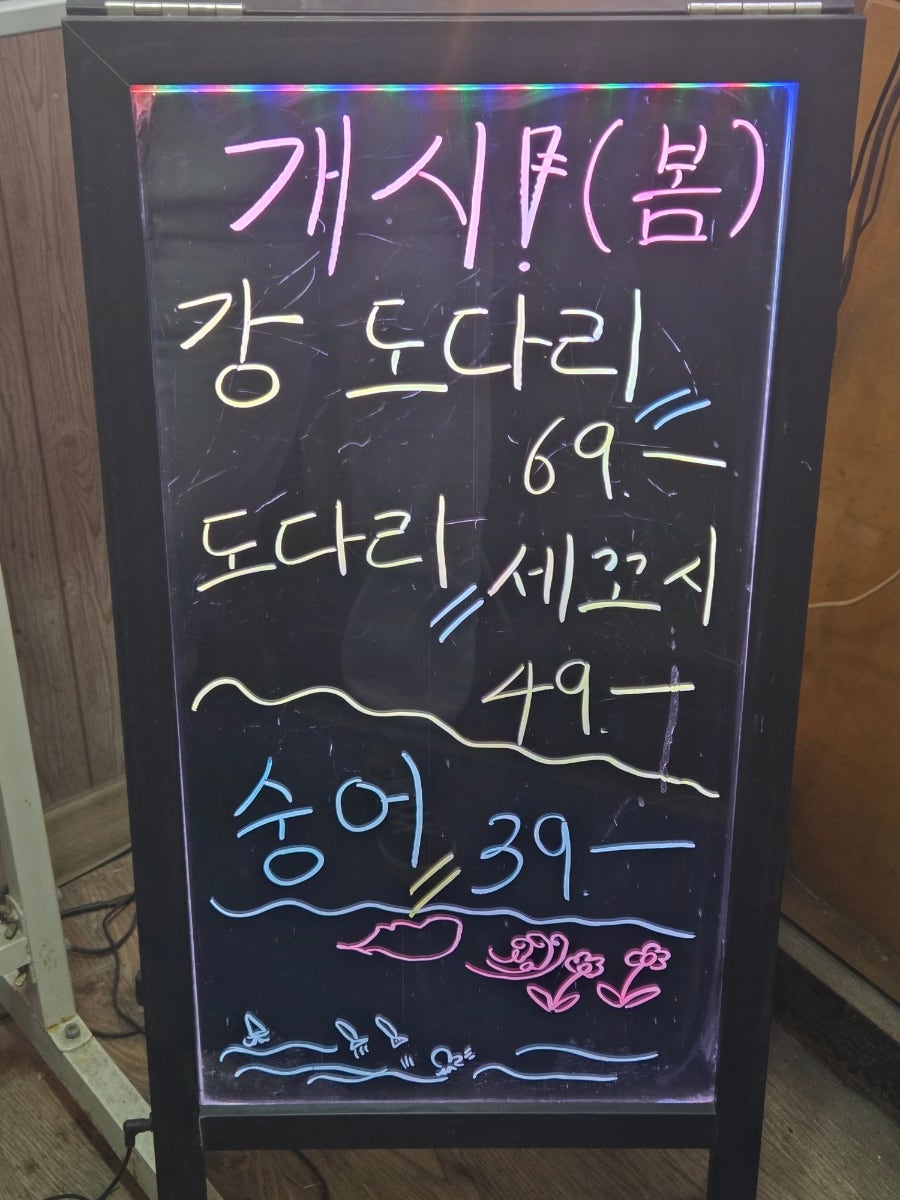 개시! (봄)
강 도다리
69.-
도다리 세꼬시
49.-
숭어 39.-